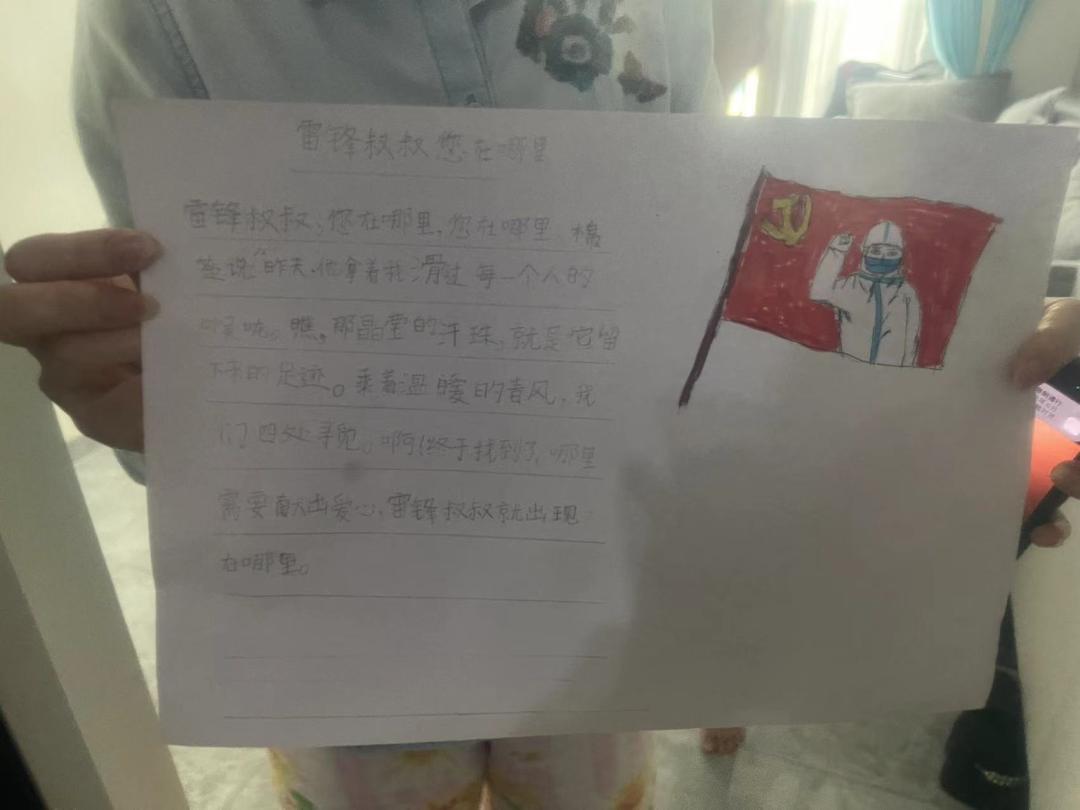 雷锋叔叔您在哪里
雷锋叔叔,您在哪里,您在哪里 棉
签说“昨天,他拿着我滑过 每一个人的
喉咙。瞧,那晶莹的汗珠,就是它留
下来的足迹。乘着温暖的春风,我
们四处寻觅。啊!终于找到了,哪里
需要献出爱心,雷锋叔叔就出现
在哪里。